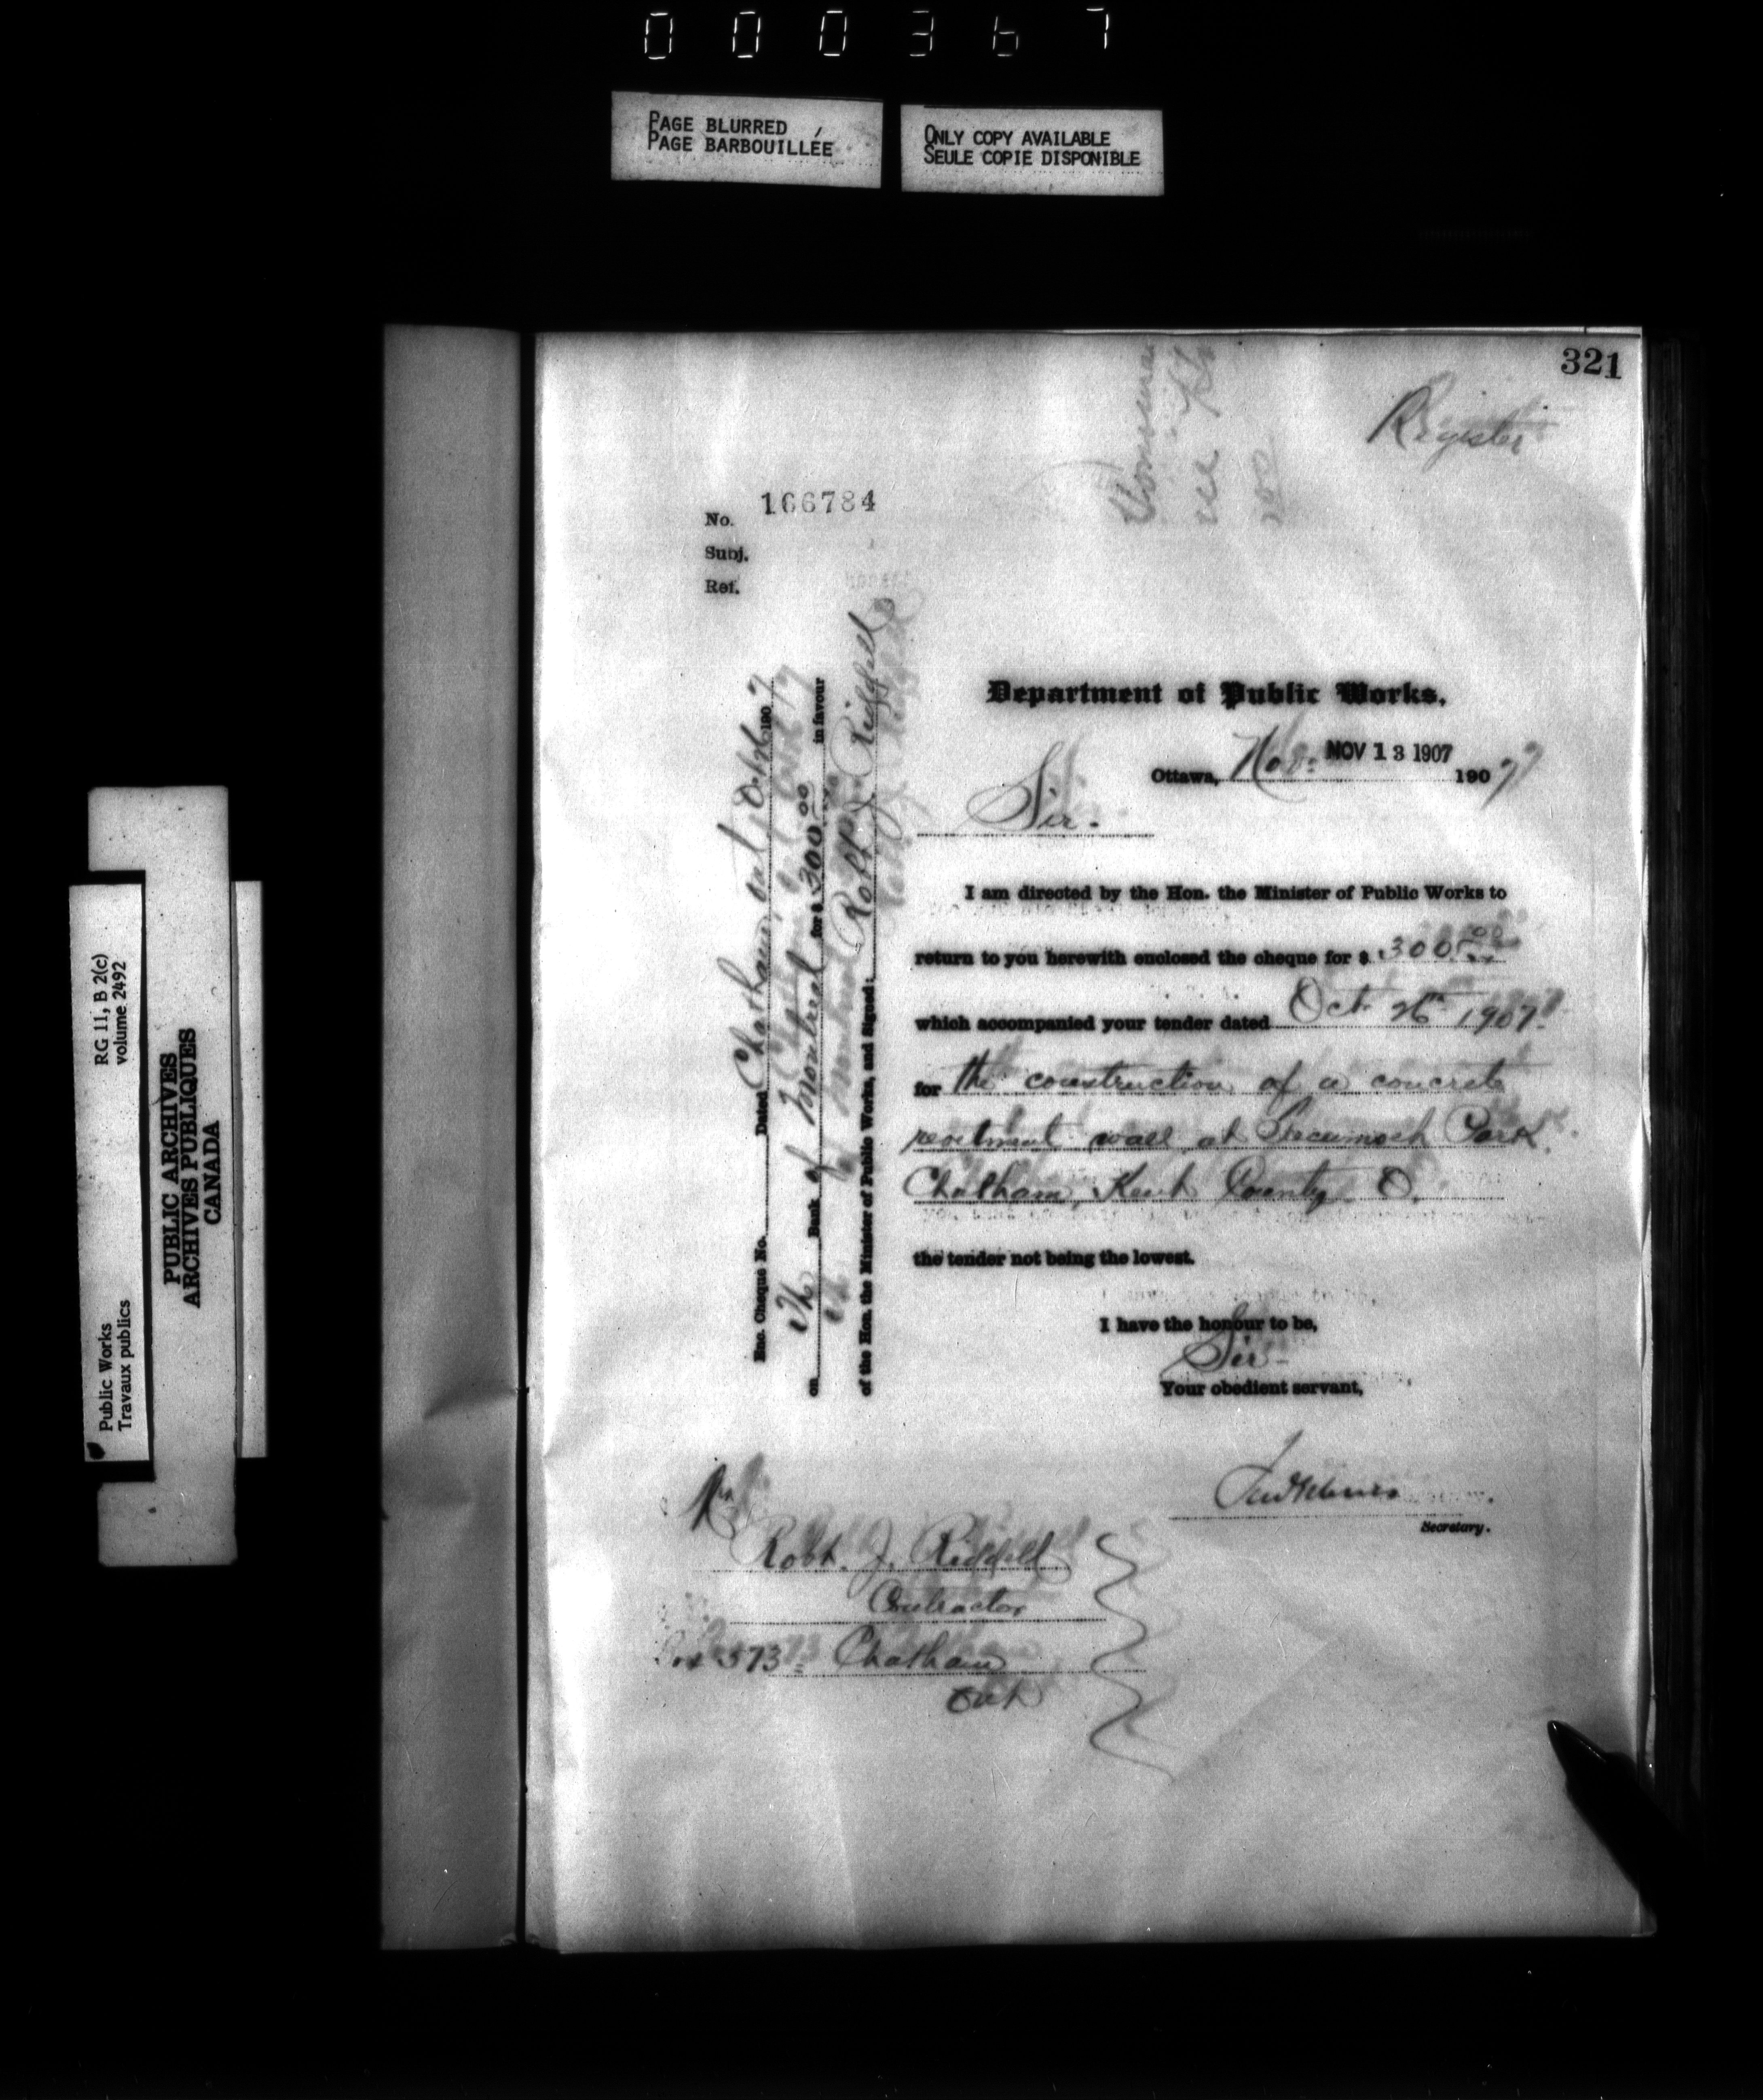 000367
PAGE BLURRED
PAGE BARBOUILLÉE
ONLY COPY AVAILABLE
SEULE COPIE DISPONIBLE
321
Register
No. 166784
Subj.
Ref.
Department of Public Works.
Ottawa, Nov. NOV 13 1907 1907
Sir.
I am directed by the Hon. the Minister of Public Works to
return to you herewith enclosed the cheque for $ 300.00
which accompanied your tender dated Oct. 26th 1907
for the construction of a concrete
revetment wall at Tecumseh Park
Chatham, Kent County O.
the tender not being the lowest.
I have the honour to be,
Sir
Your obedient servant,
Secretary.
Enc. Cheque No. Dated Chatham, Ont, Oct 26 1907
on the Bank of Montreal for $ 300.00 in favour
of the Hon. the Minister of Public Works, and Signed: Robt J Riddell
Mr
Robt. J. Riddell
Contractor
Box 573 Chatham
Ont
Public Works
Travaux publics
RG 11, B 2(c)
volume 2492
PUBLIC ARCHIVES
ARCHIVES PUBLIQUES
CANADA